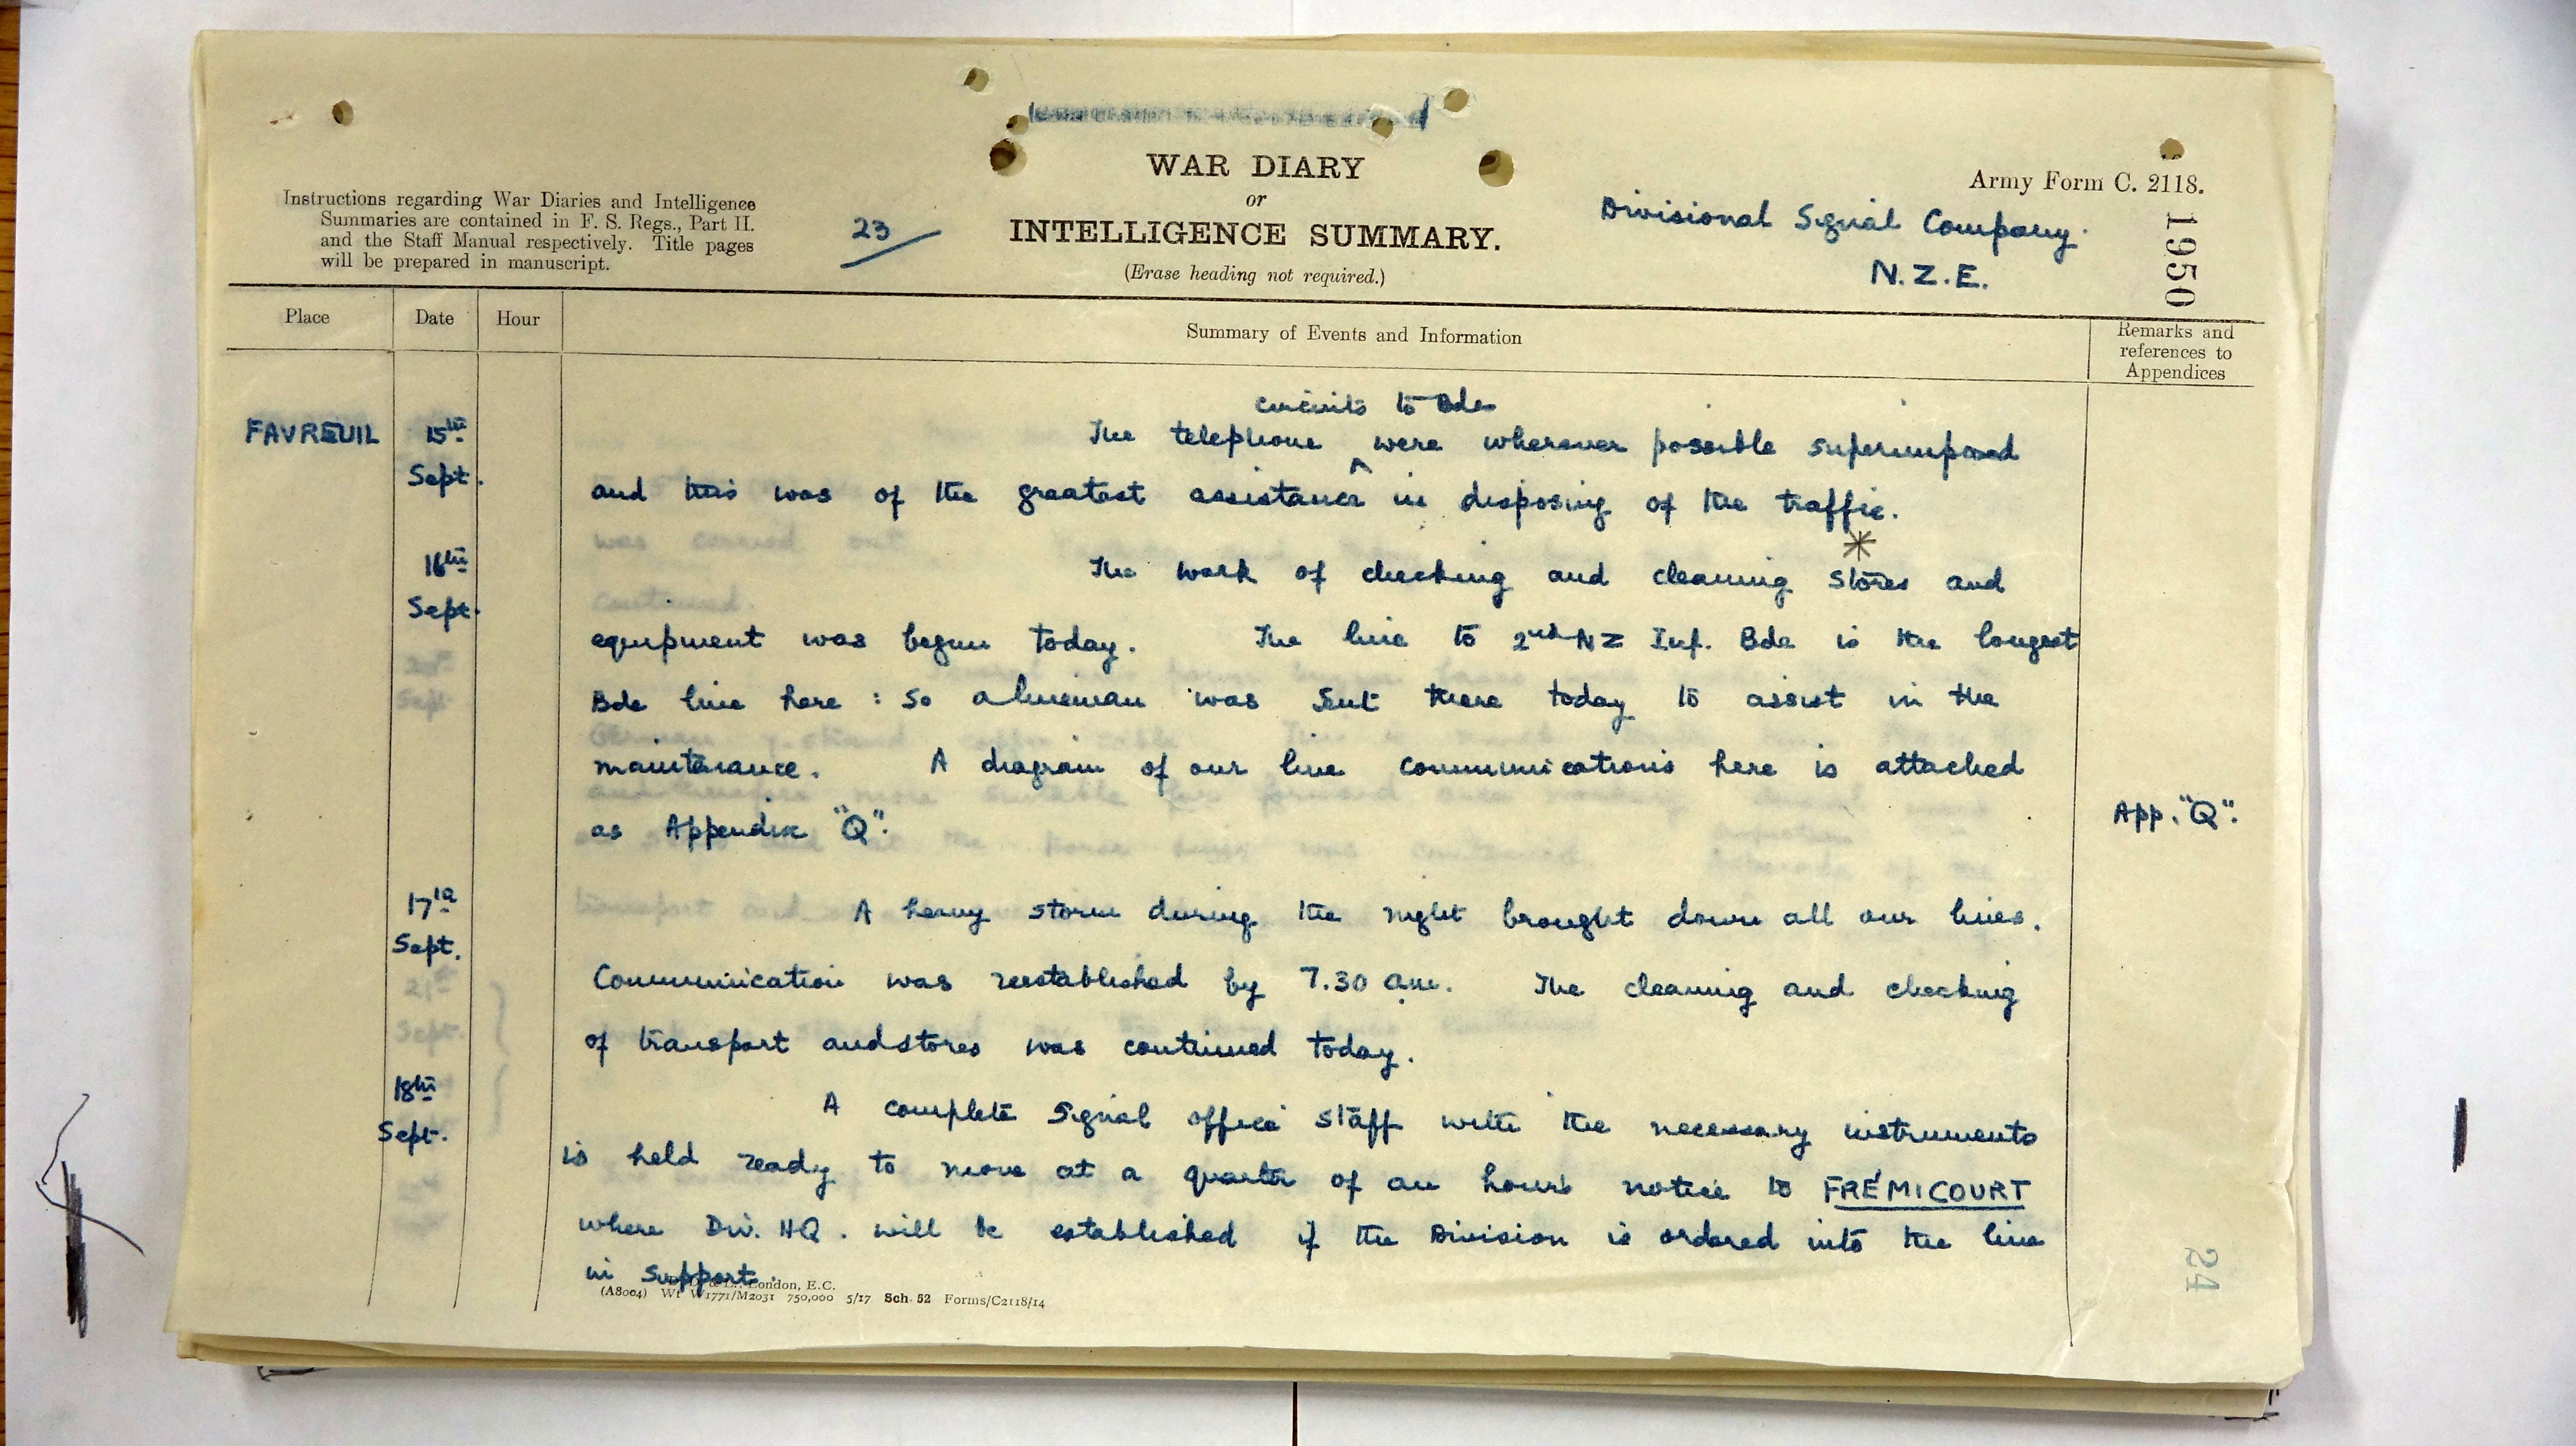 WAR DIARY
or
INTELLIGENCE SUMMARY.
(Erase heading not required.)
Instructions regarding War Diaries and Intelligence
Summaries are contained in F. S. Regs., Part II.
and the Staff Manual respectively. Title pages
will be prepared in manuscript.
23
Army Form C. 2118.
Divisional Signal Company.
N.Z.E.
1950
Place Date Hour Summary of Events and Information Remarks and
references to
Appendices
circuits to Bde
FAVREUIL 15th The telephone ^ were wherever possible superimposed
Sept. and this was of the greatest assistance in disposing of the traffic.
*
16th The work of checking and cleaning stores and
Sept. equipment was begun today. The line to 2nd NZ Inf. Bde is the longest
Bde line here : so a lineman was sent there today to assist in the
maintenance. A diagram of our line communications here is attached
as Appendix "Q". App. "Q".
17th A heavy storm during the night brought down all our lines.
Sept. Communication was reestablished by 7.30 am. The cleaning and checking
of transport and stores was continued today.
18th A complete Signal office staff with the necessary instruments
Sept. is held ready to move at a quarter of an hours notice to FRÉMICOURT
where Div. HQ. will be established if the Division is ordered into the line
in support.
London, E.C.
(A8004) Wt W1771/M2031 750,000 5/17 Sch. 52 Forms/C2118/14
24